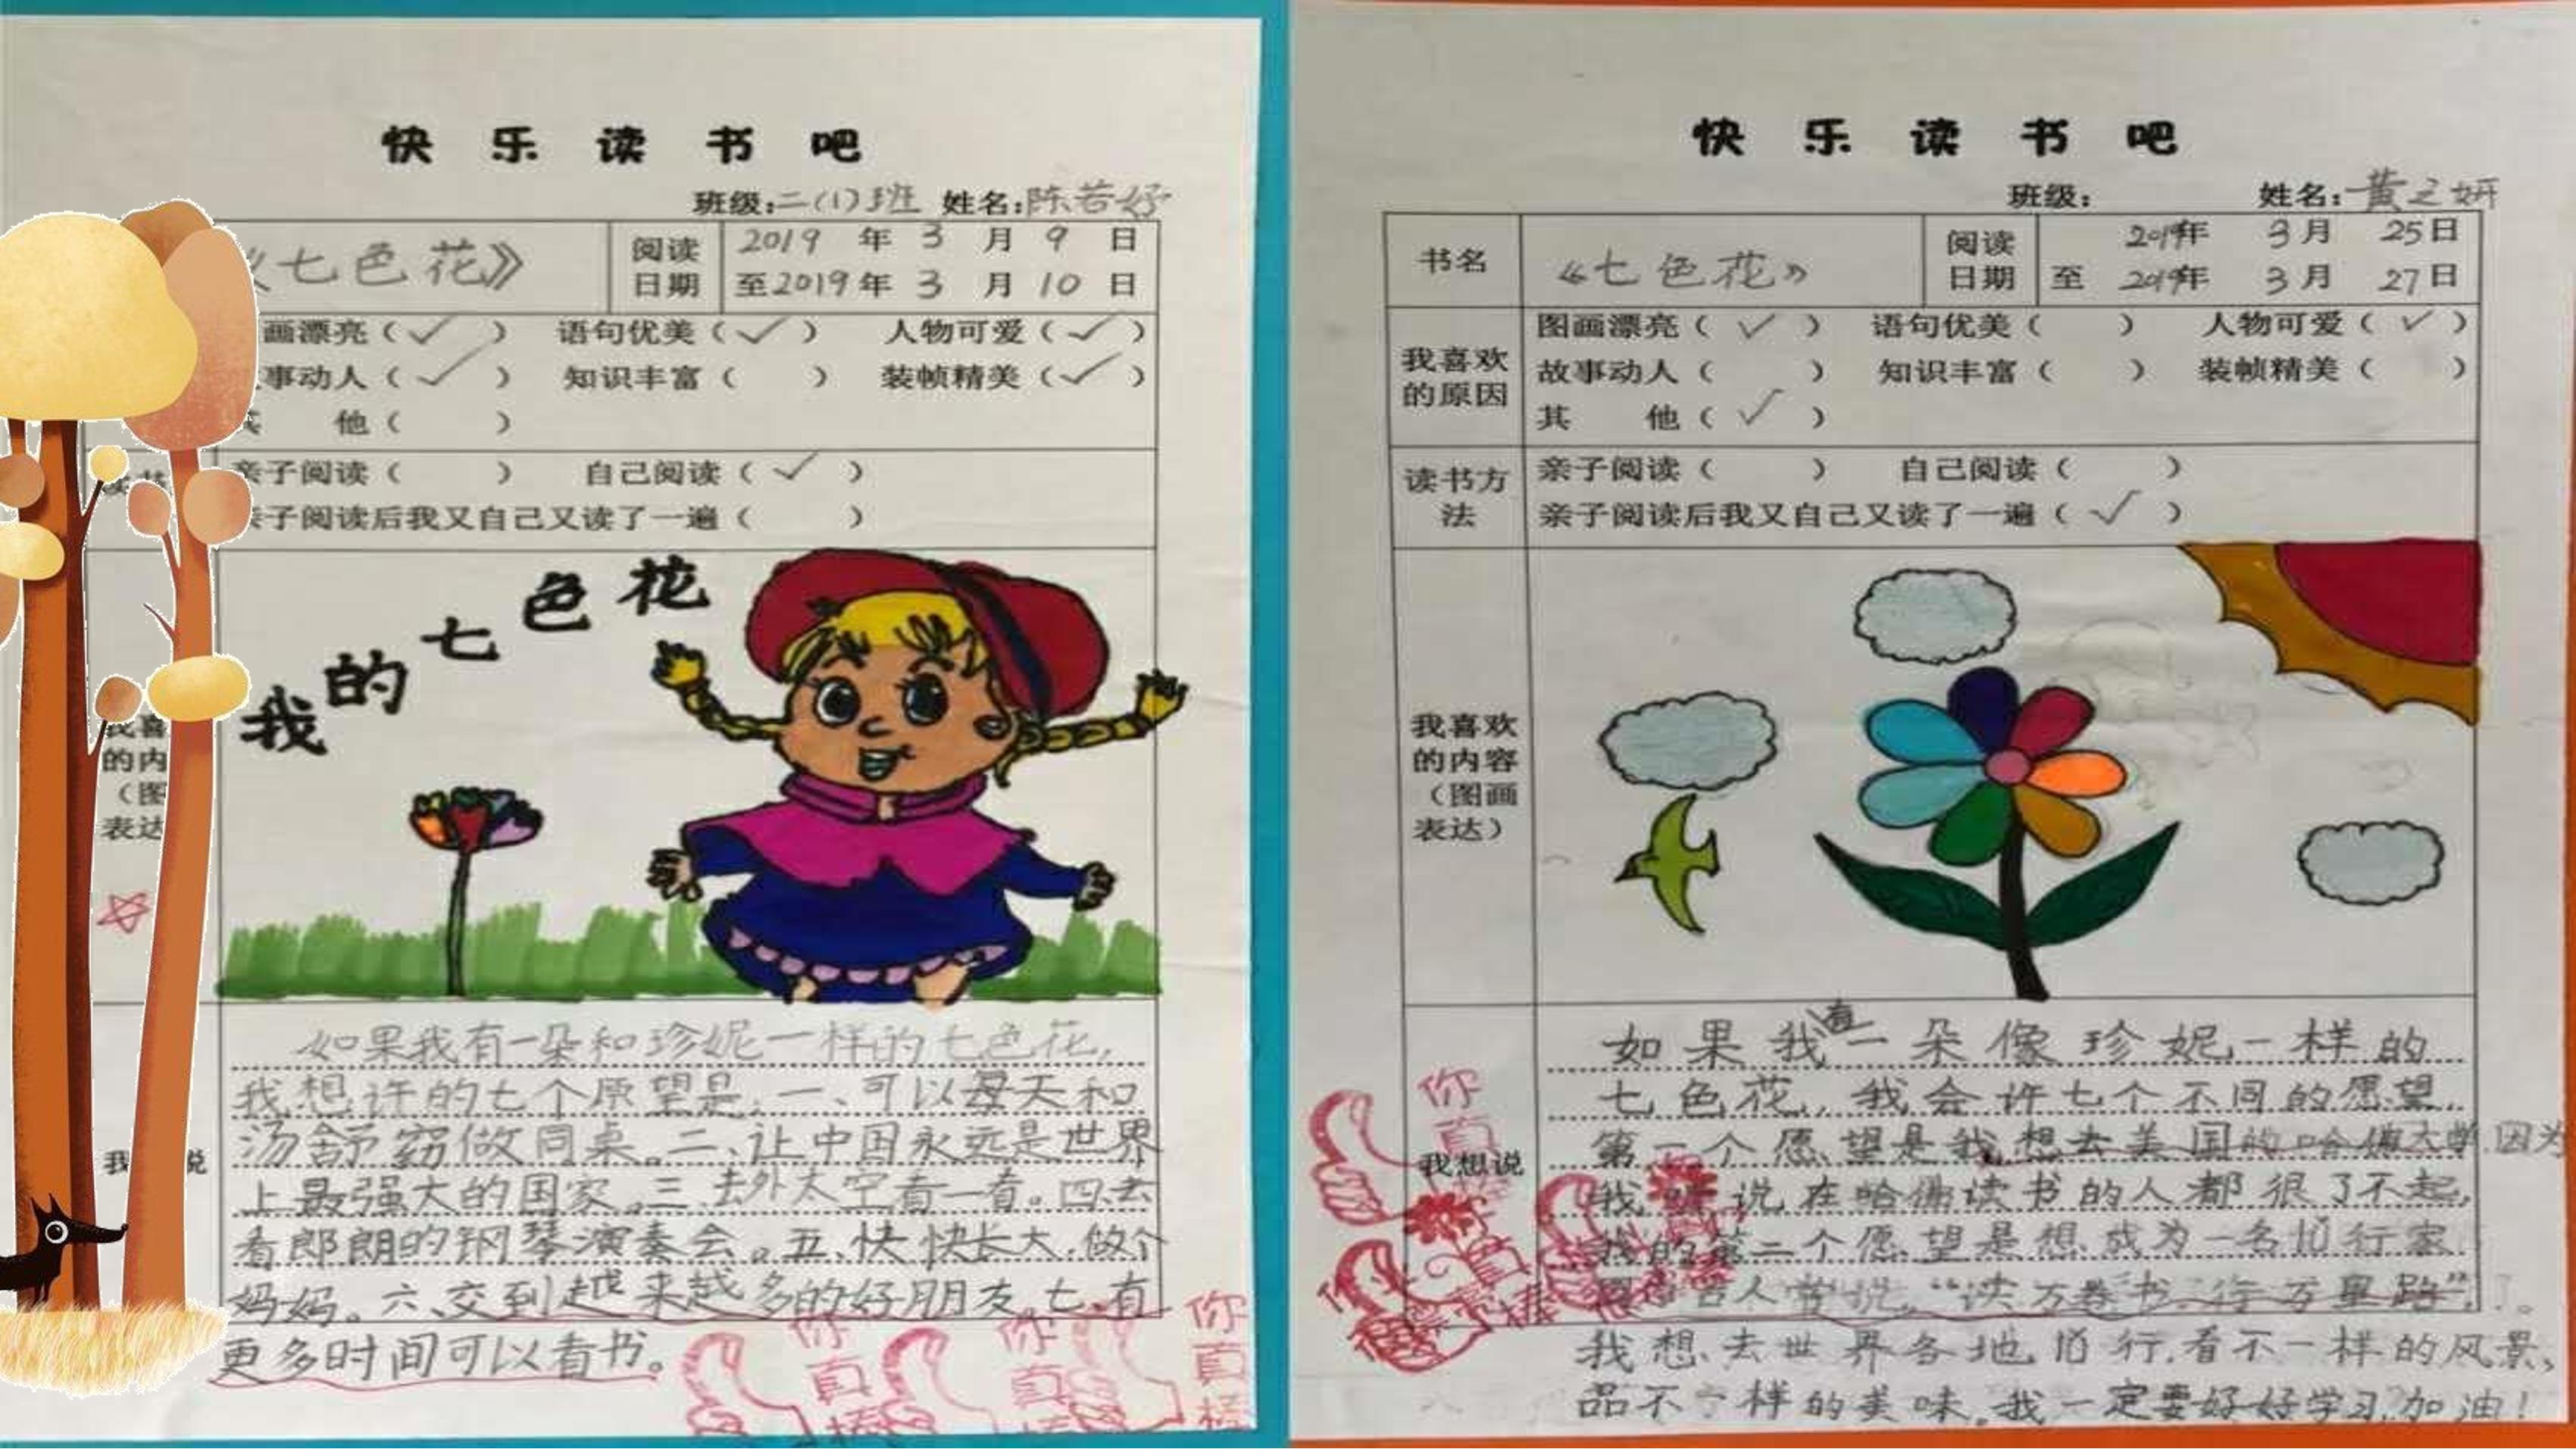 快乐读书吧
班级:二(1)班 姓名:陈若妤
《七色花》
阅读日期
2019年3月9日
至2019年3月10日
画漂亮(✓) 语句优美(✓) 人物可爱(✓)
事动人(✓) 知识丰富( ) 装帧精美(✓)
其 他( )
亲子阅读( ) 自己阅读(✓)
亲子阅读后我又自己又读了一遍( )
我的七色花
我喜
的内
(图
表达
我 说
如果我有一朵和珍妮一样的七色花,
我想许的七个原望是,一、可以每天和
汤舒窈做同桌。二、让中国永远是世界
上最强大的国家。三、去外太空看一看。四、去
看郎朗的钢琴演奏会。五、快快长大,做个
妈妈。六、交到越来越多的好朋友,七、有
更多时间可以看书。
你真棒
你真棒
你真棒
快乐读书吧
班级: 姓名:黄之妍
书名
《七色花》
阅读日期
2019年3月25日
至 2019年3月27日
我喜欢的原因
图画漂亮(✓) 语句优美( ) 人物可爱(✓)
故事动人( ) 知识丰富( ) 装帧精美( )
其 他(✓)
读书方法
亲子阅读( ) 自己阅读( )
亲子阅读后我又自己又读了一遍(✓)
我喜欢
的内容
(图画
表达)
我想说
如果我有一朵像珍妮一样的
七色花,我会许七个不同的愿望,
第一个愿望是我想去美国的哈佛大学,因为
我听说在哈佛读书的人都很了不起,
我的第二个愿望是想成为一名旧行家
古人常说,“读万卷书,行万里路”,
我想去世界各地旧行,看不一样的风景,
品不一样的美味,我一定要好好学习,加油!
你真棒